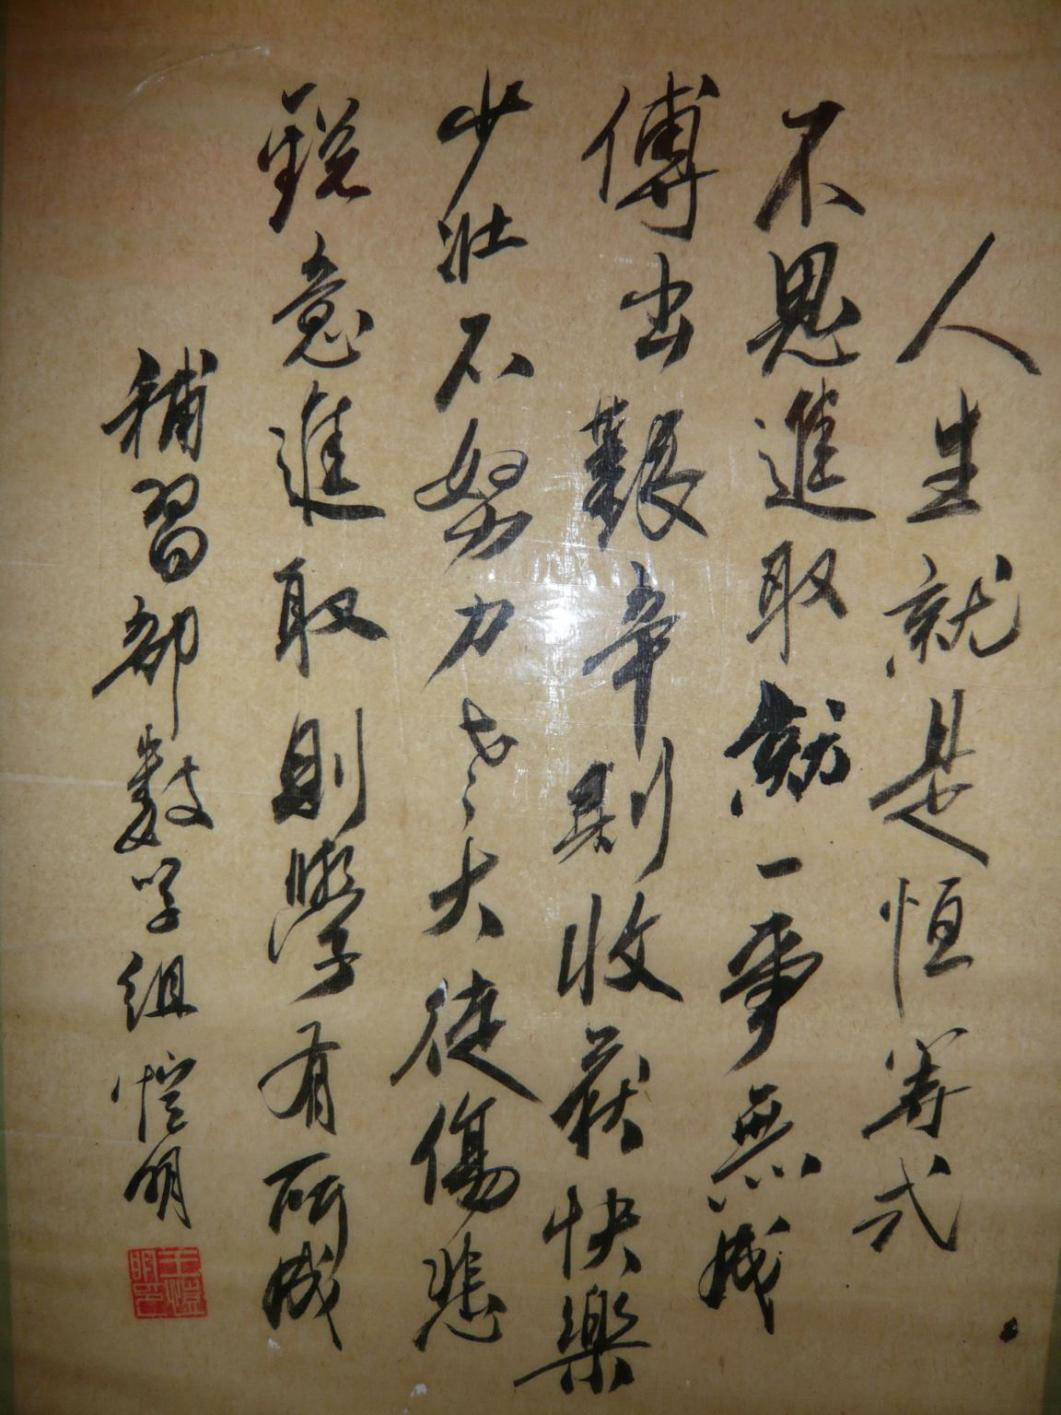 人生就是恒等式
不思進取就一事無成
傅出艱辛則收获快樂
少壯不努力老大徒傷悲
銳意進取則學有所成
補習部数学组 愷明
王愷明印